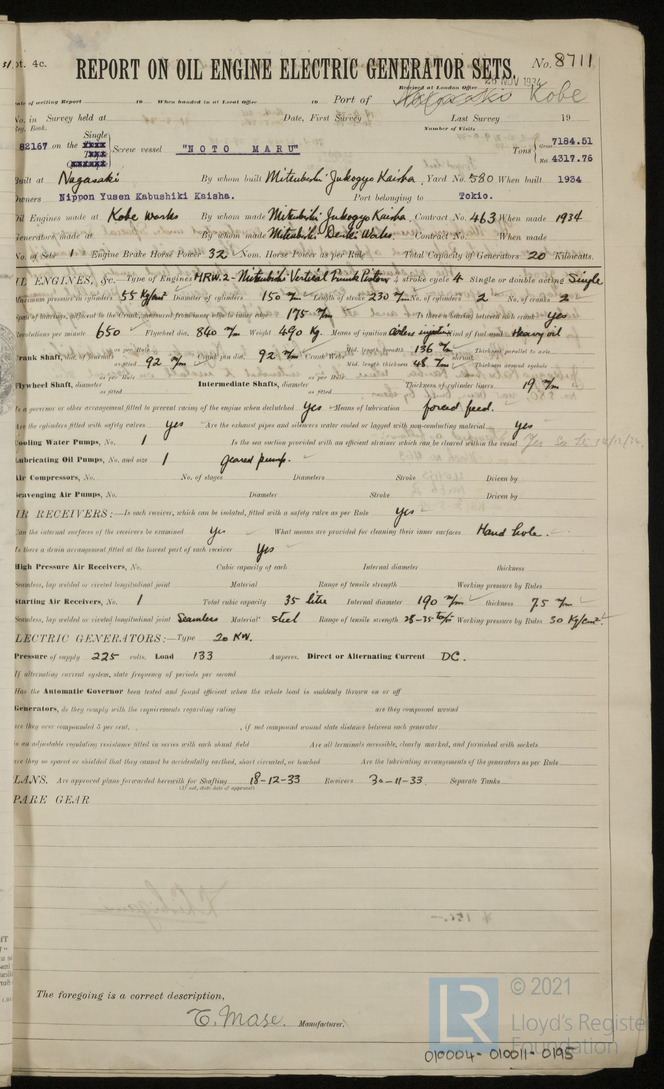 pt. 4c. REPORT ON OIL ENGINE ELECTRIC GENERATOR SETS. No. 8711
Received at London Office 26 NOV 1934
Date of writing Report 19 When handed in at Local Office 19 Port of Kobe
No. in Survey held at Date, First Survey Last Survey 19
Reg. Book. Number of Visits
82167 on the Single Screw vessel "NOTO MARU" Tons Gross 7184.51 Net 4317.76
Built at Nagasaki By whom built Mitsubishi Jukogyo Kaisha Yard No. 580 When built 1934
Owners Nippon Yusen Kabushiki Kaisha. Port belonging to Tokio.
Oil Engines made at Kobe Works By whom made Mitsubishi Jukogyo Kaisha Contract No. 463 When made 1934
Generators made at By whom made Mitsubishi Denki Works. Contract No. When made
No. of Sets 1 Engine Brake Horse Power 32 Nom. Horse Power as per Rule Total Capacity of Generators 20 Kilowatts.
OIL ENGINES, &c.—Type of Engines HRW.2 - Mitsubishi Vertical Trunk Piston 2 or 4 stroke cycle 4 Single or double acting Single
Maximum pressure in cylinders 55 kg/cm² Diameter of cylinders 150 m/m Length of stroke 230 m/m No. of cylinders 2 No. of cranks 2
Span of bearings, adjacent to the Crank, measured from inner edge to inner edge 175 m/m Is there a bearing between each crank yes
Revolutions per minute 650 Flywheel dia. 840 m/m Weight 490 Kg. Means of ignition Airless injection Kind of fuel used Heavy oil
Crank Shaft, dia. of journals as per Rule as fitted 92 m/m Crank pin dia. 92 m/m Crank Webs Mid. length breadth 136 m/m Mid. length thickness 48 m/m Thickness parallel to axis Thickness around eyehole
Flywheel Shaft, diameter as per Rule as fitted Intermediate Shafts, diameter as per Rule as fitted Thickness of cylinder liners 19 m/m
Is a governor or other arrangement fitted to prevent racing of the engine when declutched Yes Means of lubrication forced feed.
Are the cylinders fitted with safety valves yes Are the exhaust pipes and silencers water cooled or lagged with non-conducting material yes
Cooling Water Pumps, No. 1 Is the sea suction provided with an efficient strainer which can be cleared within the vessel Yes
Lubricating Oil Pumps, No. and size 1 geared pump.
Air Compressors, No. No. of stages Diameters Stroke Driven by
Scavenging Air Pumps, No. Diameter Stroke Driven by
AIR RECEIVERS:—Is each receiver, which can be isolated, fitted with a safety valve as per Rule Yes
Can the internal surfaces of the receivers be examined Yes What means are provided for cleaning their inner surfaces Hand hole.
Is there a drain arrangement fitted at the lowest part of each receiver Yes
High Pressure Air Receivers, No. Cubic capacity of each Internal diameter thickness
Seamless, lap welded or riveted longitudinal joint Material Range of tensile strength Working pressure by Rules
Starting Air Receivers, No. 1 Total cubic capacity 35 litre Internal diameter 190 m/m thickness 7.5 m/m
Seamless, lap welded or riveted longitudinal joint Seamless Material steel Range of tensile strength 28-35 Working pressure by Rules 30 Kg/cm²
ELECTRIC GENERATORS:—Type 20 KW.
Pressure of supply 225 volts. Load 133 Amperes. Direct or Alternating Current DC.
If alternating current system, state frequency of periods per second
Has the Automatic Governor been tested and found efficient when the whole load is suddenly thrown on or off
Generators, do they comply with the requirements regarding rating are they compound wound
are they over compounded 5 per cent. , if not compound wound state distance between each generator
is an adjustable regulating resistance fitted in series with each shunt field Are all terminals accessible, clearly marked, and furnished with sockets
are they so spaced or shielded that they cannot be accidentally earthed, short circuited, or touched Are the lubricating arrangements of the generators as per Rule
PLANS. Are approved plans forwarded herewith for Shafting 18-12-33 Receivers 30-11-33 Separate Tanks
(If not, state date of approval)
SPARE GEAR
The foregoing is a correct description,
T. Mase. Manufacturer.
© 2021
LR Lloyd's Register
Foundation
010004-010011-0195